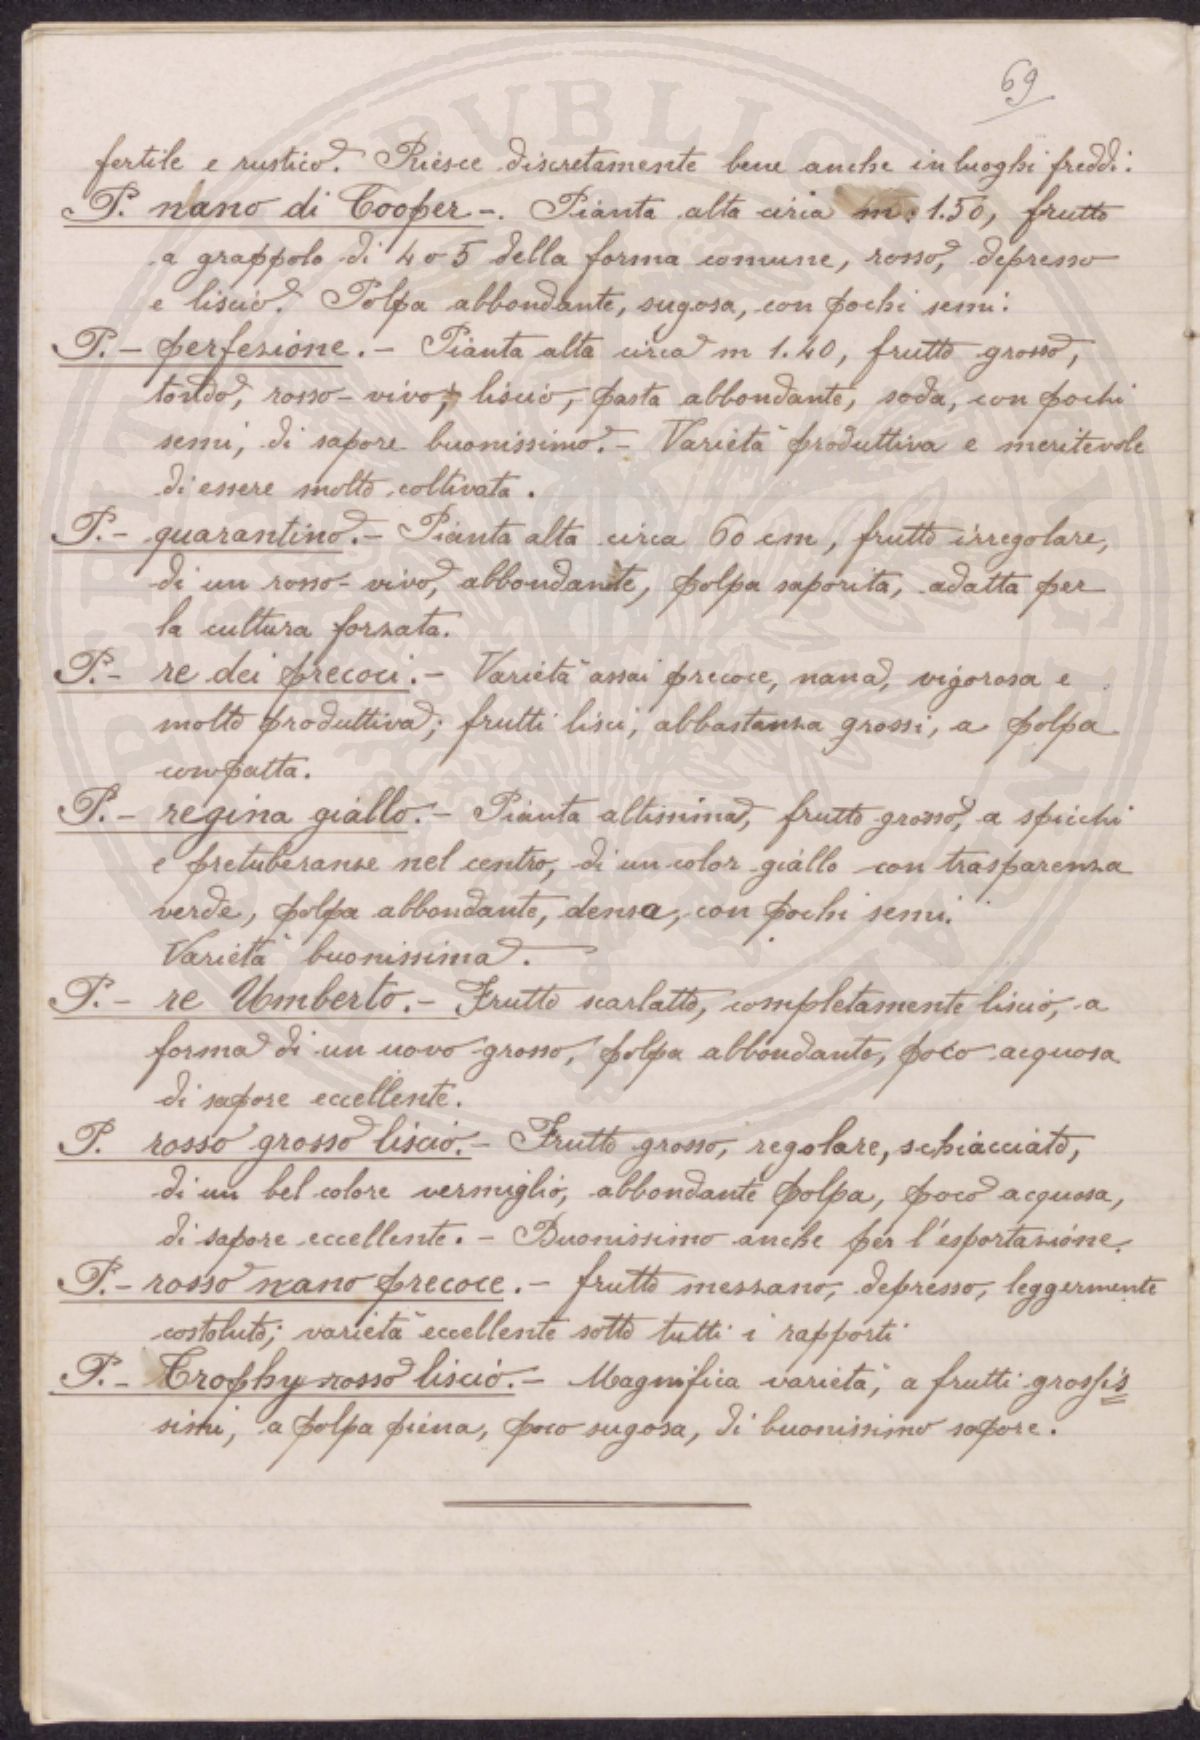 69
fertile e rustico. Riesce discretamente bene anche in luoghi freddi.
P. nano di Cooper -. Pianta alta circa m. 1.50, frutto
a grappolo di 4 o 5 della forma comune, rosso, depresso
e liscio. Polpa abbondante, sugosa, con pochi semi.
P. - perfezione. - Pianta alta circa m 1.40, frutto grosso,
tondo, rosso-vivo, liscio, pasta abbondante, soda, con pochi
semi, di sapore buonissimo. - Varietà produttiva e meritevole
di essere molto coltivata.
P. - quarantino. - Pianta alta circa 60 cm, frutto irregolare,
di un rosso-vivo, abbondante, polpa saporita, adatta per
la cultura forzata.
P. - re dei precoci. - Varietà assai precoce, nana, vigorosa e
molto produttiva; frutti lisci, abbastanza grossi, a polpa
compatta.
P. - regina giallo. - Pianta altissima, frutto grosso, a spicchi
e pretuberanze nel centro, di un color giallo con trasparenza
verde, polpa abbondante, densa, con pochi semi.
Varietà buonissima.
P. - re Umberto. - Frutto scarlatto, completamente liscio, a
forma di un uovo grosso, polpa abbondante, poco acquosa
di sapore eccellente.
P. rosso grosso liscio. - Frutto grosso, regolare, schiacciato,
di un bel colore vermiglio, abbondante polpa, poco acquosa,
di sapore eccellente. - Buonissimo anche per l'esportazione.
P. - rosso nano precoce. - frutto mezzano, depresso, leggermente
costoluto; varietà eccellente sotto tutti i rapporti
P. - Trophy rosso liscio. - Magnifica varietà, a frutti grossis
simi, a polpa piena, poco sugosa, di buonissimo sapore.